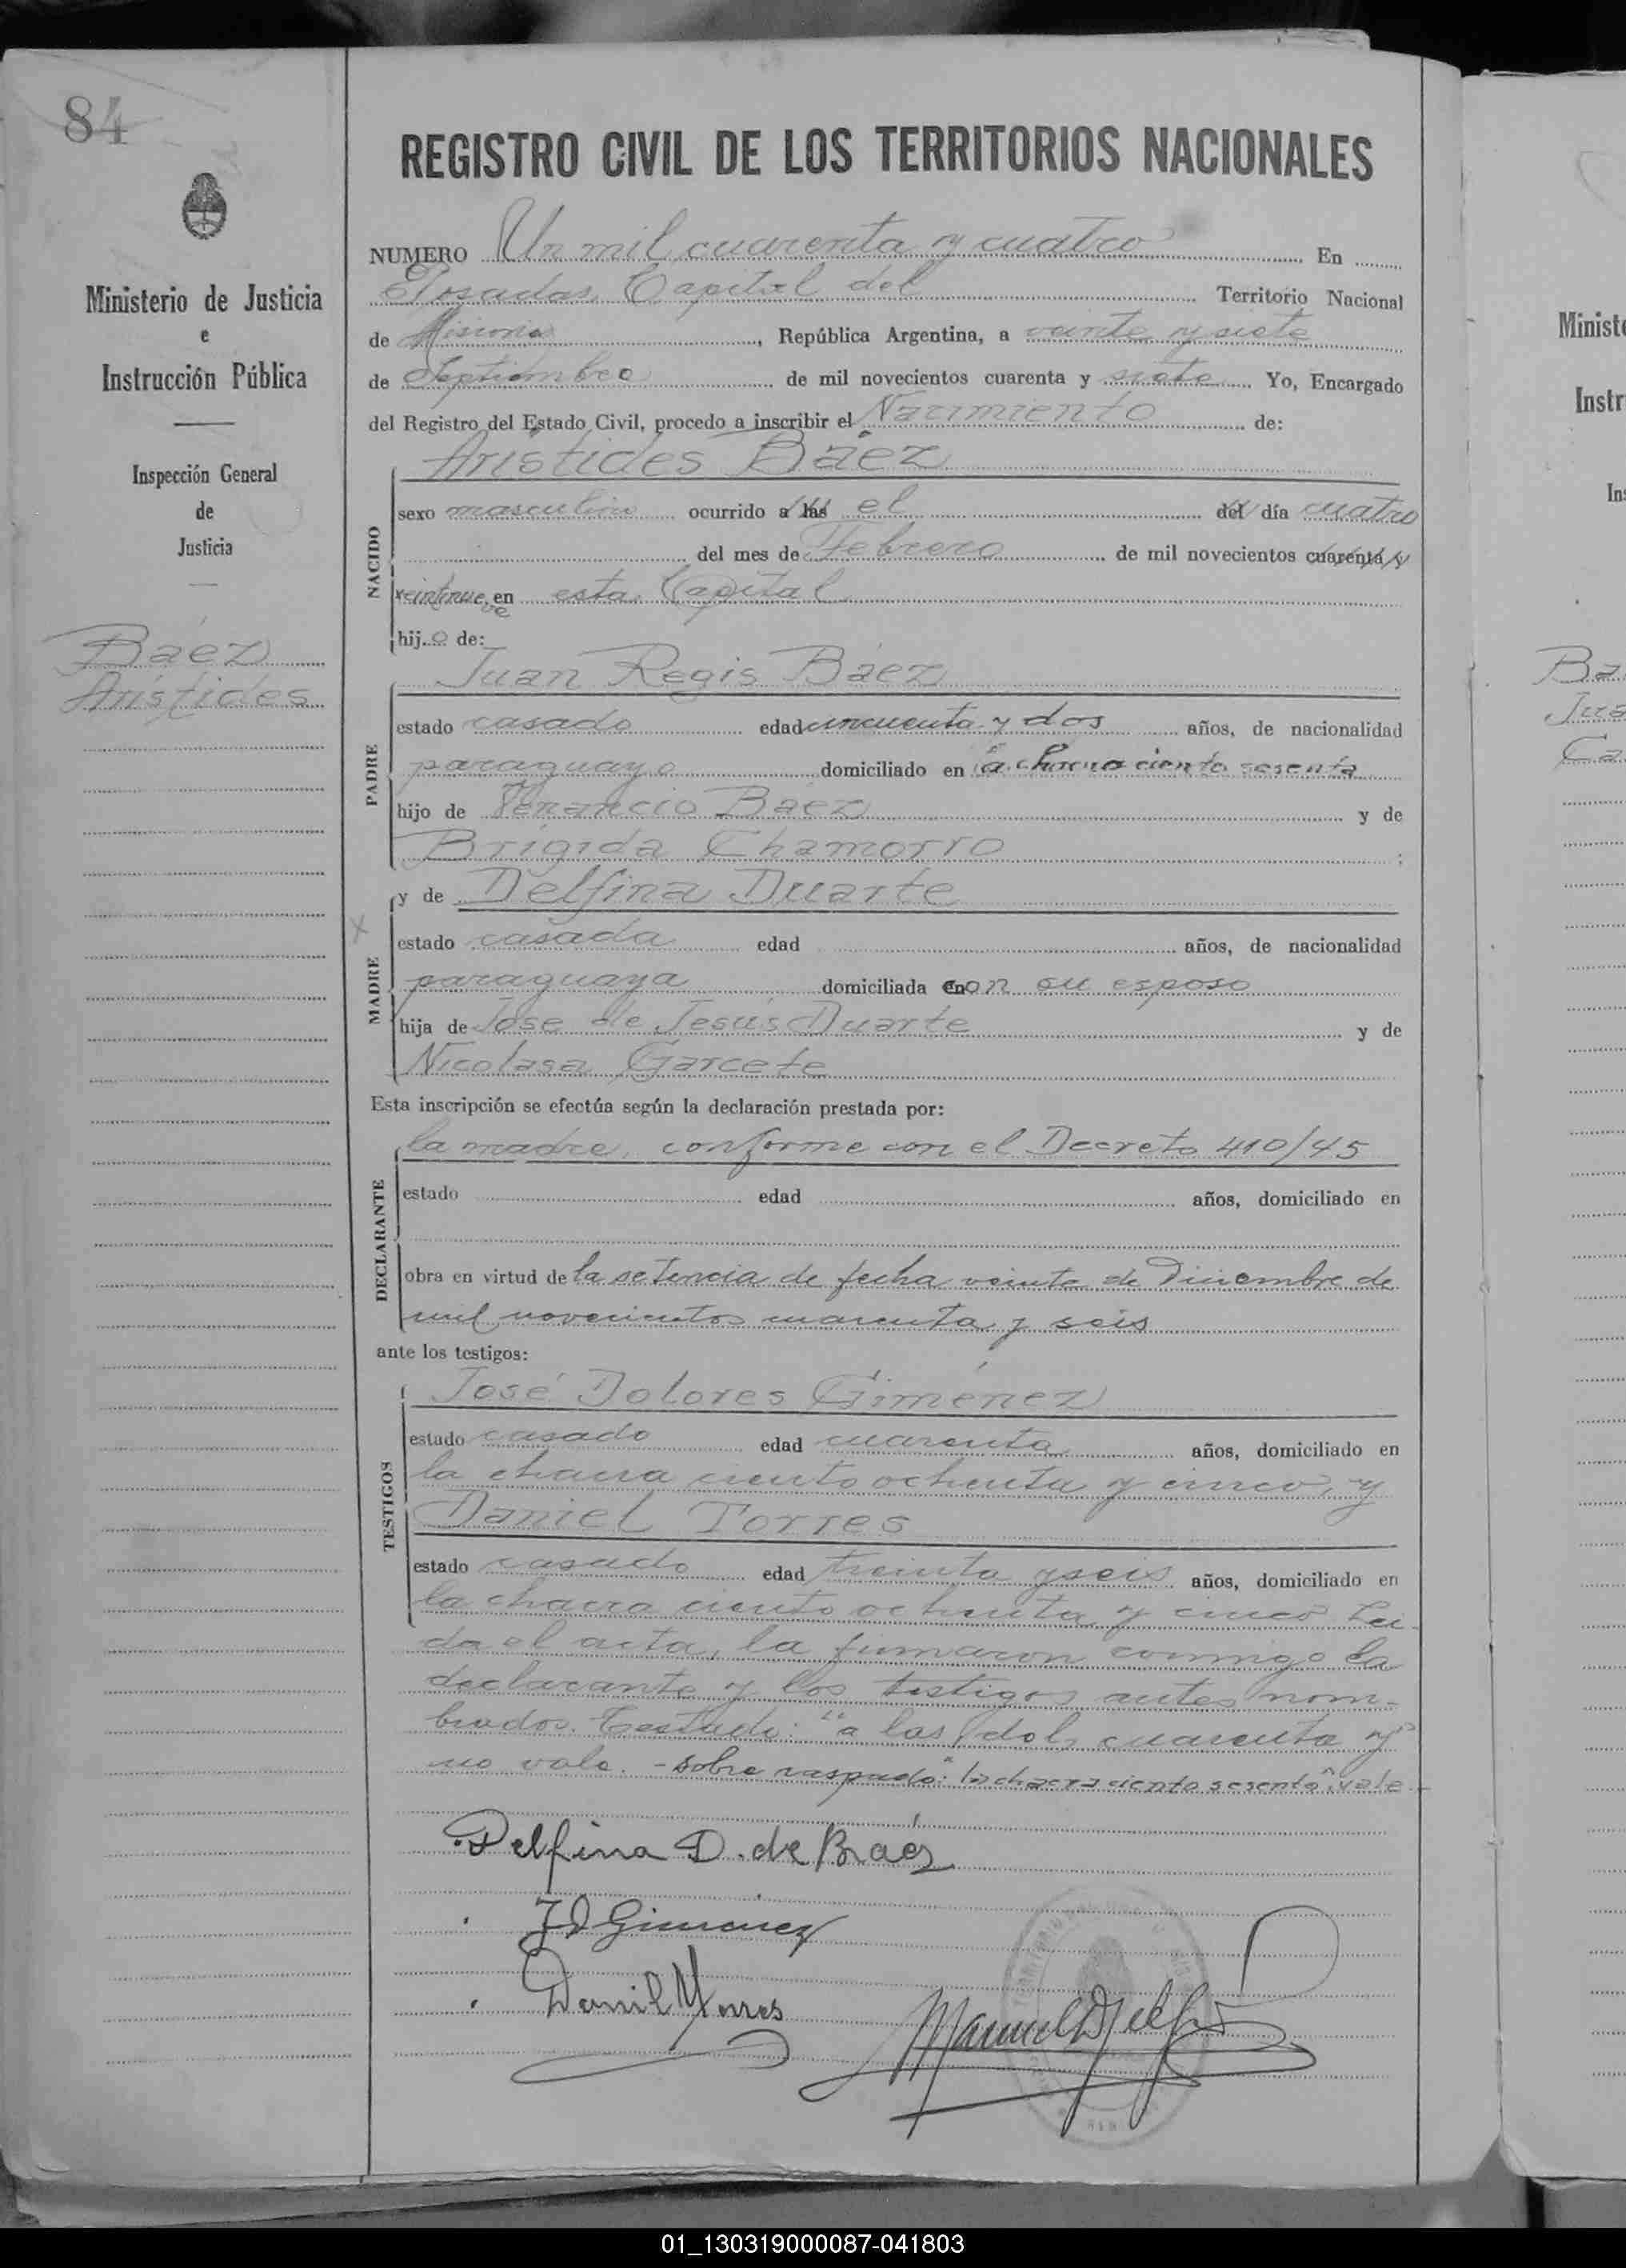 84
Ministerio de Justicia
e
Instrucción Pública
Inspección General
de
Justicia
Báez
Arístides
REGISTRO CIVIL DE LOS TERRITORIOS NACIONALES
NUMERO Un mil cuarenta y cuatro En
Posadas, Capital del Territorio Nacional
de Misiones, República Argentina, a veinte y siete
de Septiembre de mil novecientos cuarenta y siete Yo, Encargado
del Registro del Estado Civil, procedo a inscribir el Nacimiento de:
Arístides Báez
NACIDO
sexo masculino ocurrido a las el del día cuatro
del mes de Febrero de mil novecientos cuarenta y
veintinueve en esta Capital
hijo de:
Juan Regis Báez
PADRE
estado casado edad cincuenta y dos años, de nacionalidad
paraguayo domiciliado en la chacra ciento sesenta
hijo de Venancio Báez y de
Brígida Chamorro ;
y de Delfina Duarte
MADRE
estado casada edad años, de nacionalidad
paraguaya domiciliada con su esposo
hija de José de Jesús Duarte y de
Nicolasa Garcete
Esta inscripción se efectúa según la declaración prestada por:
la madre, conforme con el Decreto 410/45
DECLARANTE
estado edad años, domiciliado en
obra en virtud de la setencia de fecha veinte de Diciembre de
mil novecientos cuarenta y seis
ante los testigos:
José Dolores Giménez
TESTIGOS
estado casado edad cuarenta años, domiciliado en
la chacra ciento ochenta y cinco, y
Daniel Torres
estado casado edad treinta y seis años, domiciliado en
la chacra ciento ochenta y cinco Leí-
da el acta, la firmaron conmigo la
declarante y los testigos antes nom-
brados. Testado: "a las, del, cuarenta y"
no vale. - sobre raspado: "la chacra ciento sesenta" vale -
Delfina D. de Báez
J D Gimenez
Daniel Torres
Minist
Instr
In
Ba
Jua
Ca
01_130319000087-041803